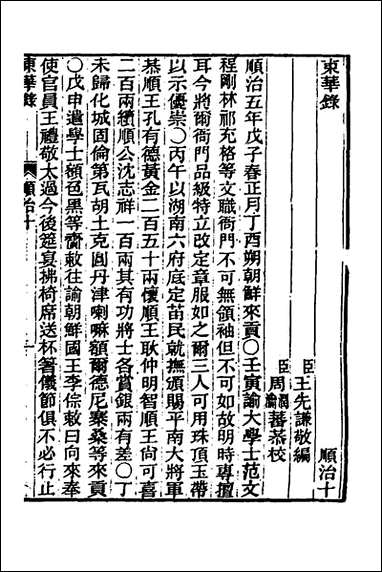 東華錄
順治十
臣王先謙敬編
臣周潤蕃周瀹蕃恭校
順治五年戊子春正月丁酉朔朝鮮來貢〇壬寅諭大學士范文
程剛林祁充格等文職衙門不可無領袖但不可如故明時專擅
耳今將爾衙門品級特立改定章服如之爾三人可用珠頂玉帶
以示優崇〇丙午以湖南六府底定苗民就撫頒賜平南大將軍
恭順王孔有德黃金二百五十兩懷順王耿仲明智順王尚可喜
二百兩續順公沈志祥一百兩其有功將士各賞銀兩有差〇丁
未歸化城固倫第瓦胡土克圖丹津喇嘛額爾德尼寨桑等來貢
〇戊申遣學士額色黑等齎敕往諭朝鮮國王李倧敕曰向來奉
使官員王禮敬太過今後筵宴拂椅席送杯箸儀節俱不必行止
東華錄
順治十
一